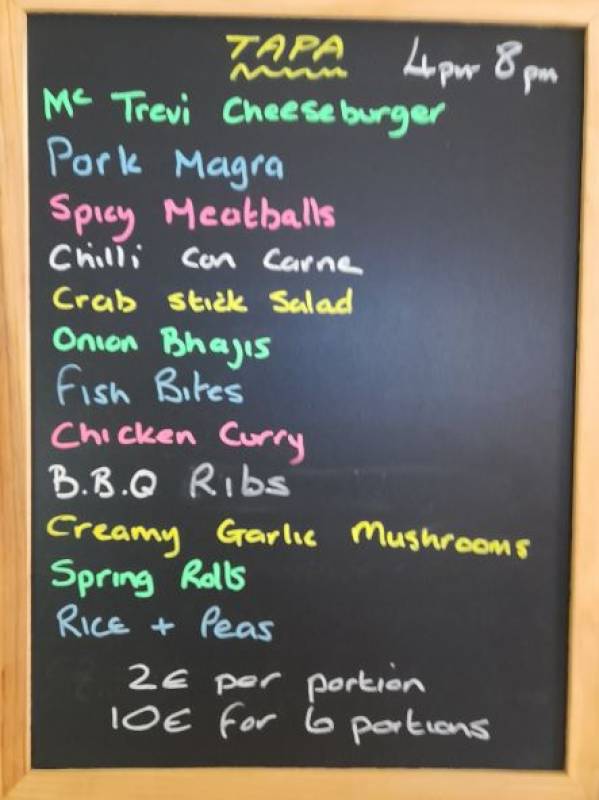 TAPA 4pm 8pm
Mc Trevi Cheeseburger
Pork Magra
Spicy Meatballs
Chilli Con Carne
Crab stick Salad
Onion Bhajis
Fish Bites
Chicken Curry
B.B.Q Ribs
Creamy Garlic Mushrooms
Spring Rolls
Rice + Peas
2€ per portion
10€ for 6 portions